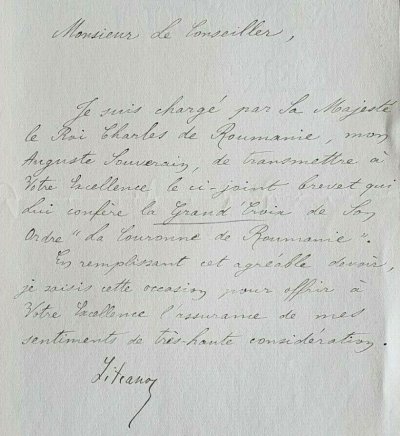 Monsieur le Conseiller,
Je suis chargé par Sa Majesté
le Roi Charles de Roumanie, mon
Auguste Souverain, de transmettre à
Votre Excellence le ci-joint brevet qui
Lui confère la Grand Croix de Son
Ordre "La Couronne de Roumanie".
En remplissant cet agréable devoir,
je saisis cette occasion pour offrir à
Votre Excellence l'assurance de mes
sentiments de très-haute considération.